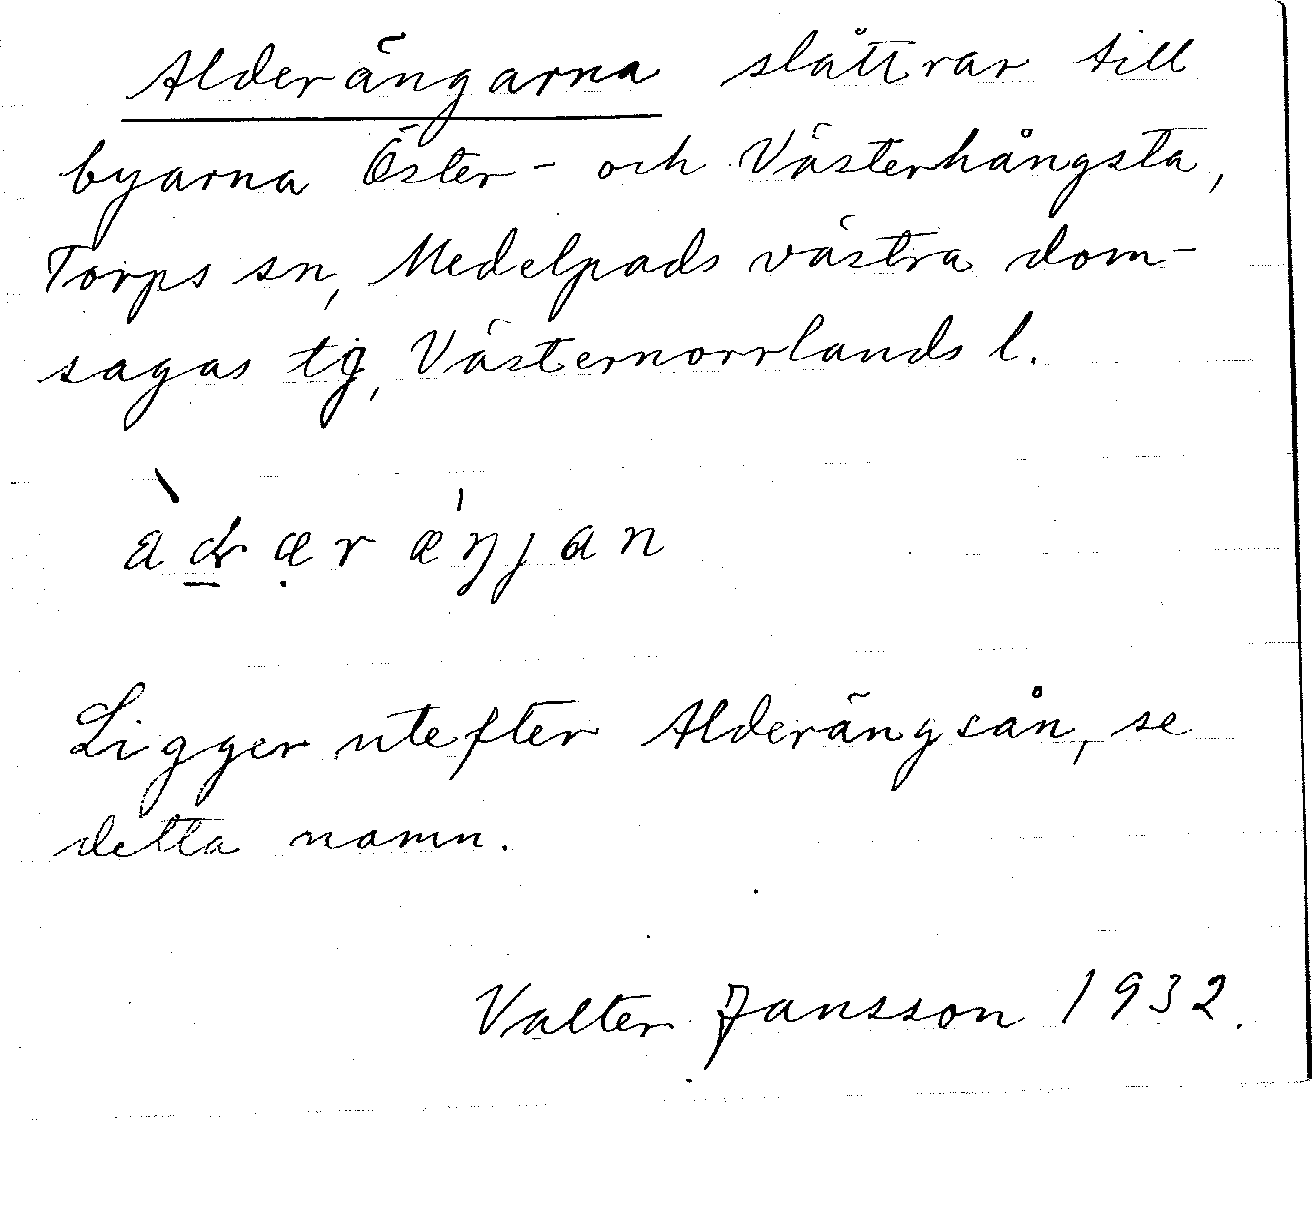 Alderängarna slåttrar till
byarna Öster- och Västerhångsta,
Torps sn, Medelpads västra dom-
sagas tg, Västernorrlands l.
Ligger utefter Alderängsån, se
detta namn.
Valter Jansson 1932.